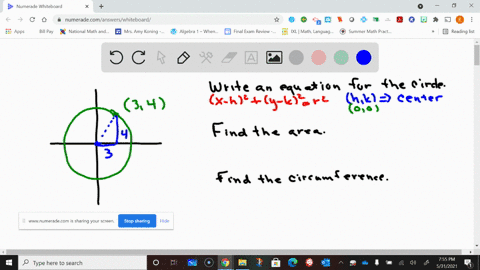 Numerade Whiteboard
numerade.com/answers/whiteboard/
Apps
Bill Pay
National Math and...
Mrs. Amy Koning -...
Algebra 1 - Wheno...
Final Exam Review -...
IXL | Math, Languag...
Summer Math Practi...
Reading list
Write an equation for the circle.
(x-h)²+(y-k)²=r² (h,k)=> center
(0,0)
(3,4)
4
3
Find the area.
Find the circumference.
www.numerade.com is sharing your screen.
Stop sharing
Hide
Type here to search
7:55 PM
5/31/2021